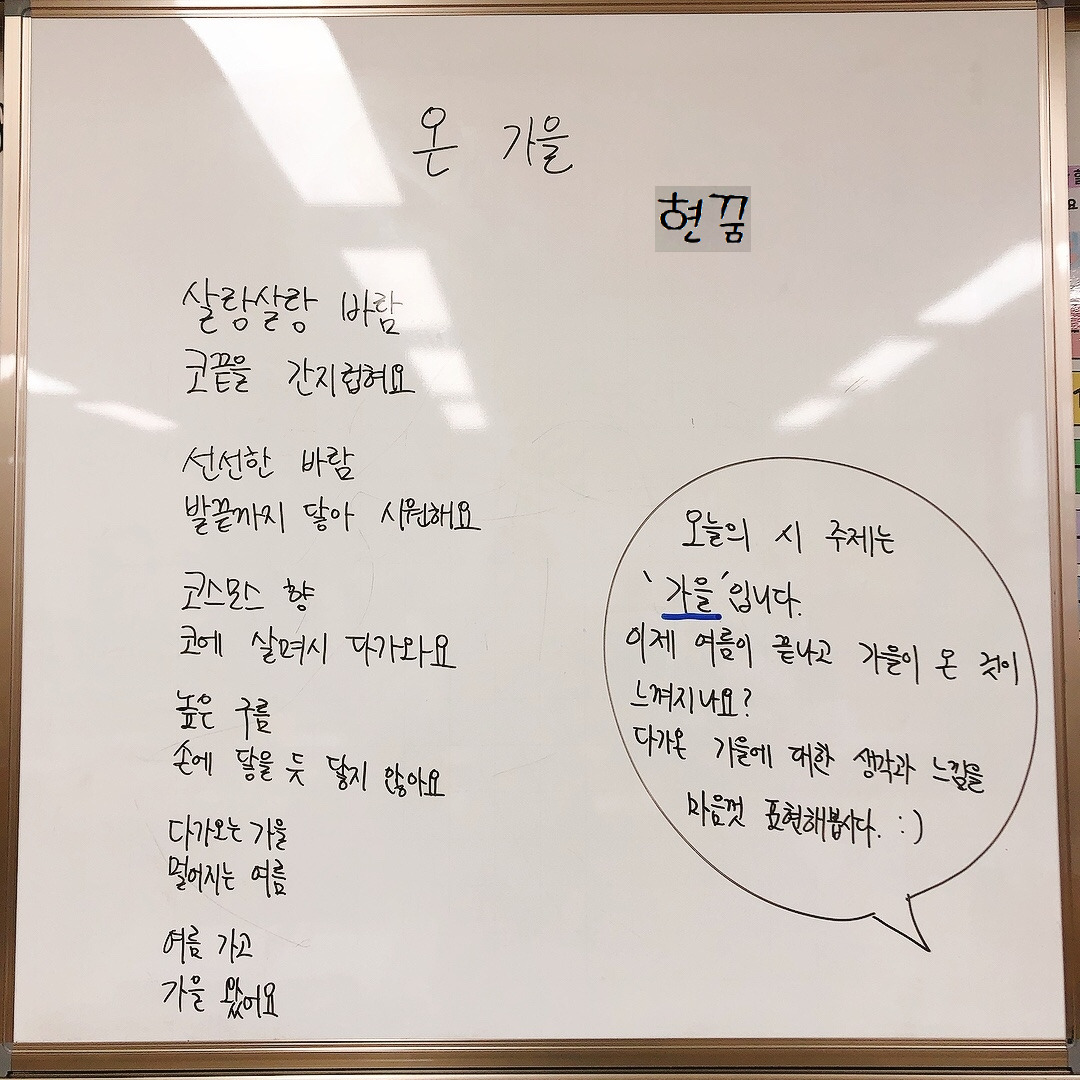 온 가을
현꿈
살랑살랑 바람
코끝을 간지럽혀요
선선한 바람
발끝까지 닿아 시원해요
코스모스 향
코에 살며시 다가와요
높은 구름
손에 닿을 듯 닿지 않아요
다가오는 가을
멀어지는 여름
여름 가고
가을 왔어요
오늘의 시 주제는
'가을'입니다.
이제 여름이 끝나고 가을이 온 것이
느껴지나요?
다가온 가을에 대한 생각과 느낌을
마음껏 표현해봅시다. :)